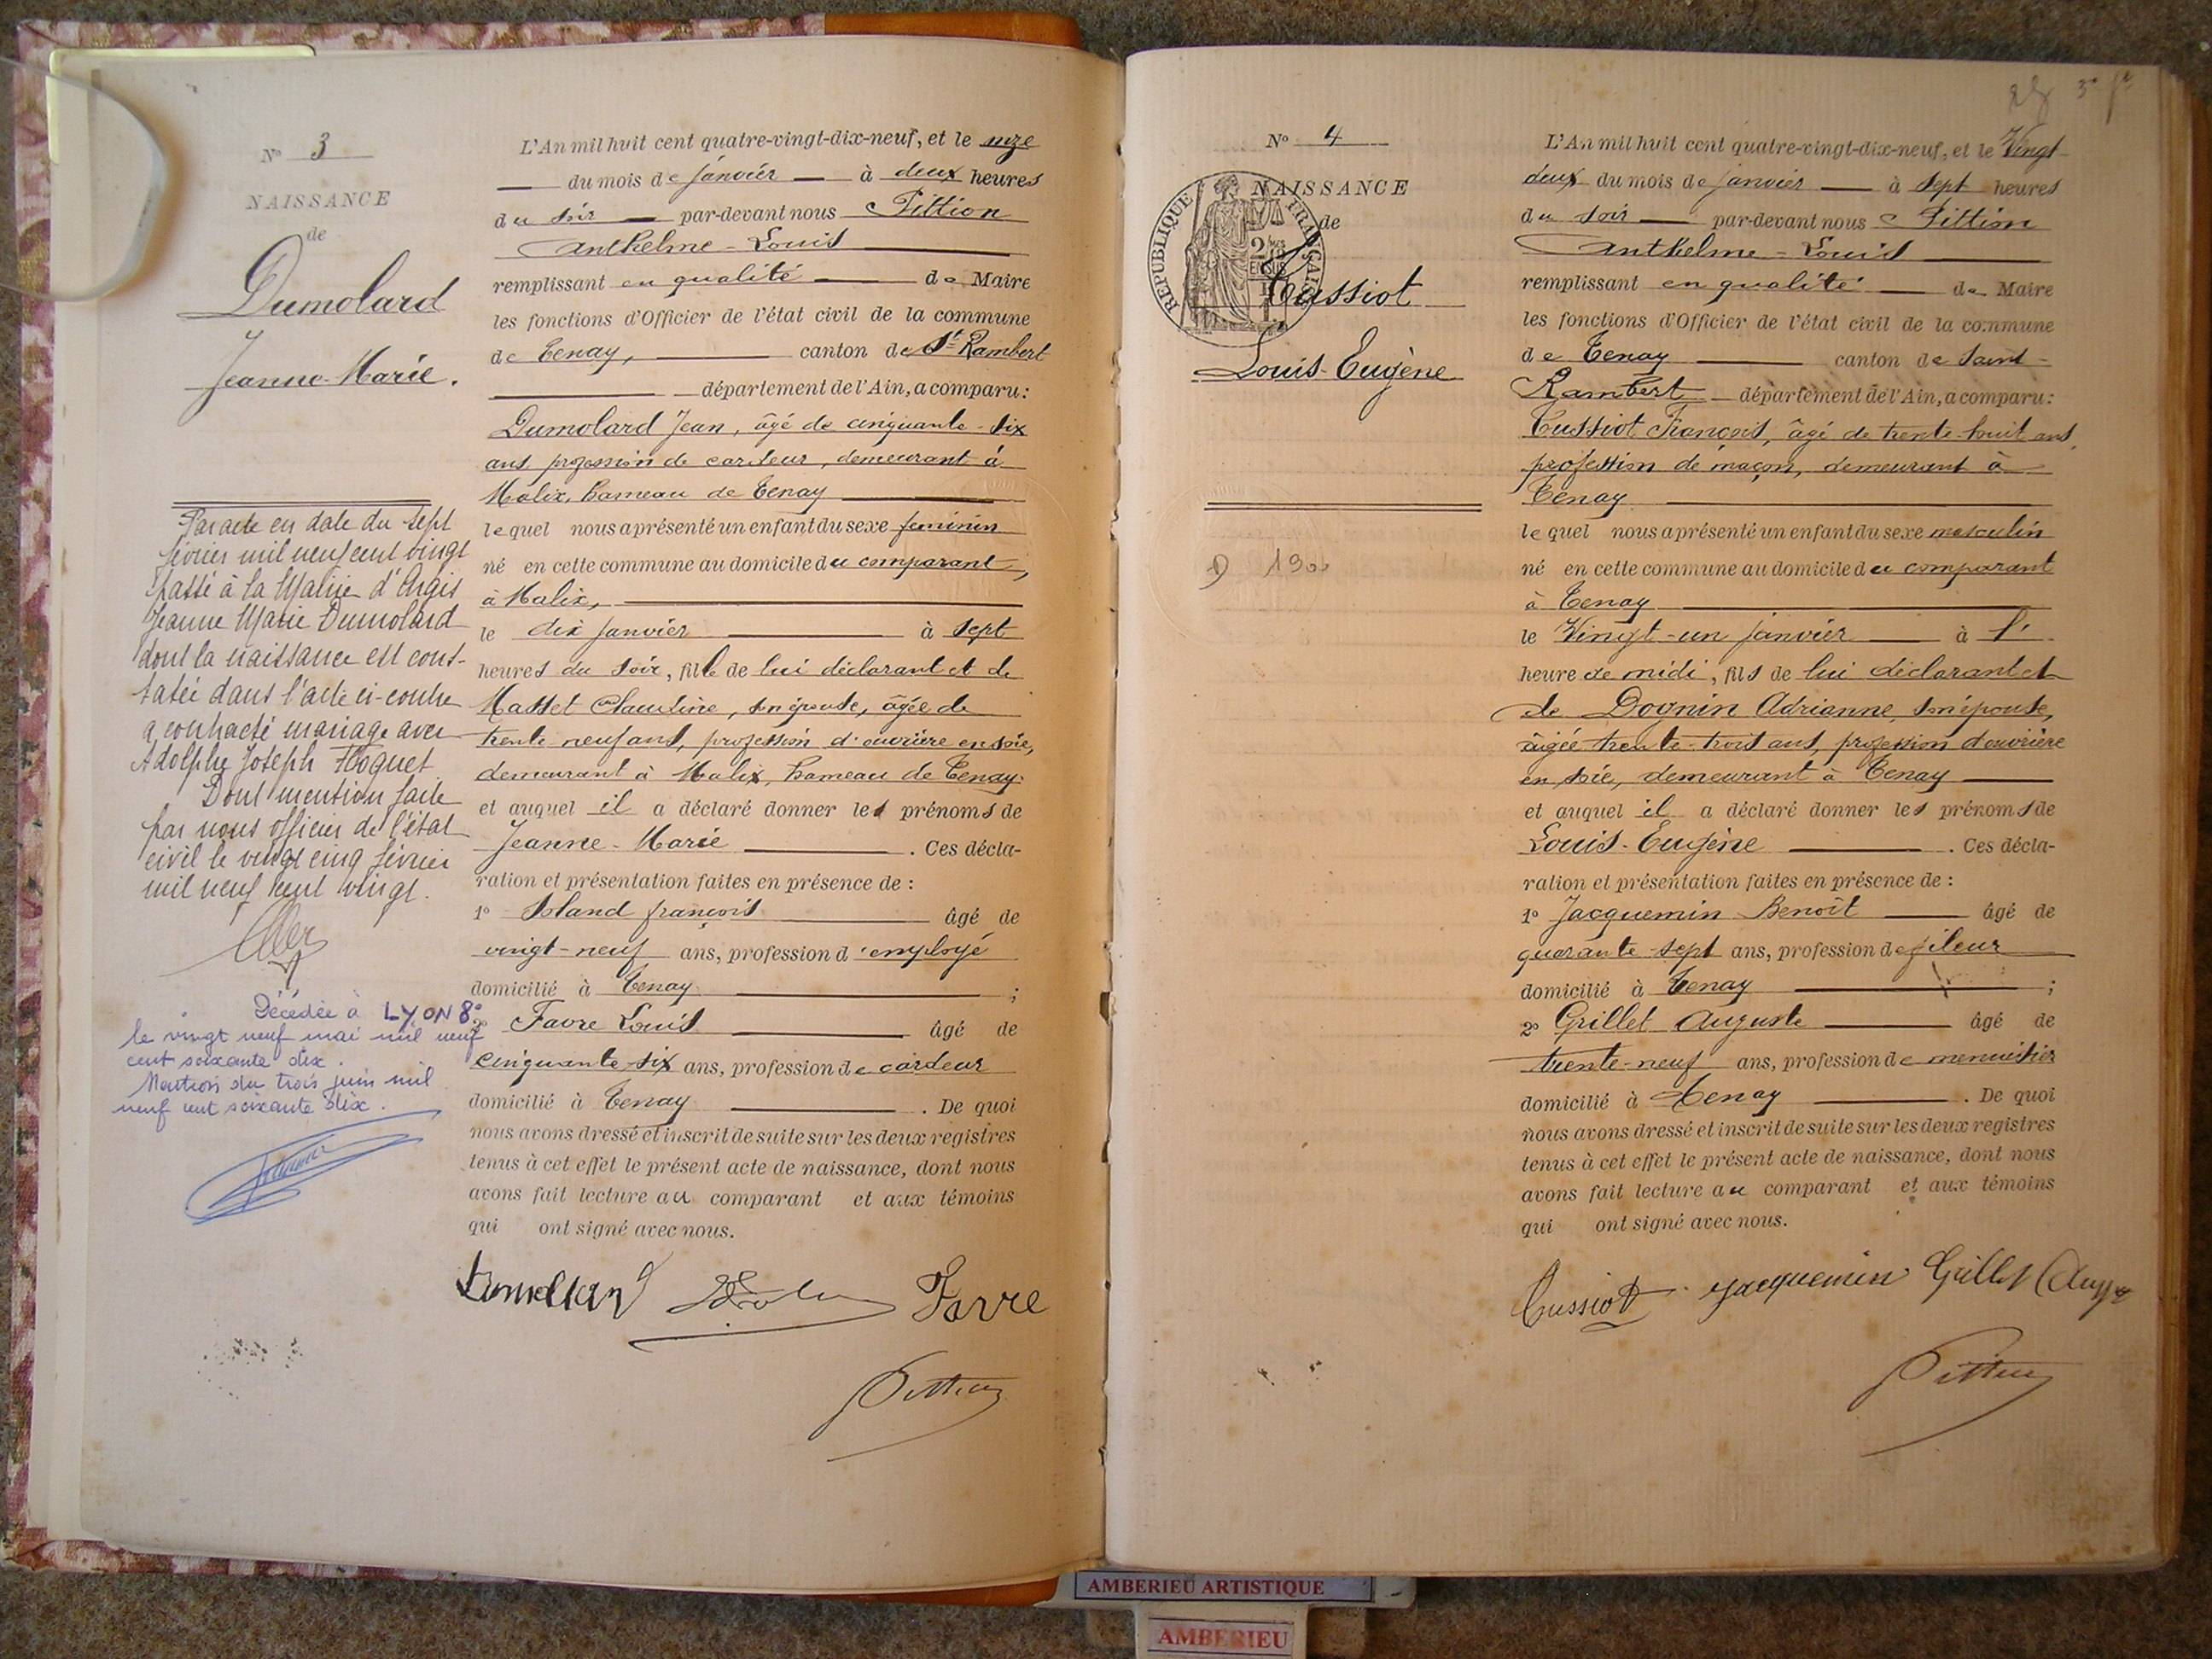 N° 3
NAISSANCE
de
Dumolard
Jeanne-Marie.
Par acte en date du sept
février mil neuf cent vingt
passé à la Mairie d'Argis
Jeanne Marie Dumolard
dont la naissance est cons-
tatée dans l'acte ci-contre
a contracté mariage avec
Adolphe Joseph Hoguet
Dont mention faite
par nous officier de l'état
civil le vingt cinq février
mil neuf cent vingt.
Décédée à LYON 8e
le vingt neuf mai mil neuf
cent soixante dix.
Mention du trois juin mil
neuf cent soixante dix.
L'An mil huit cent quatre-vingt-dix-neuf, et le onze
du mois de janvier à deux heures
du soir par-devant nous Pittion
Anthelme-Louis
remplissant en qualité de Maire
les fonctions d'Officier de l'état civil de la commune
de Tenay, canton de St Rambert
département de l'Ain, a comparu:
Dumolard Jean, âgé de cinquante-six
ans profession de cardeur, demeurant à
Malix, hameau de Tenay
lequel nous a présenté un enfant du sexe feminin
né en cette commune au domicile du comparant,
à Malix,
le dix janvier à sept
heures du soir, fille de lui déclarant et de
Masset Claudine, son épouse, âgée de
trente neuf ans, profession d'ouvrière en soie,
demeurant à Malix, hameau de Tenay.
et auquel il a déclaré donner les prénoms de
Jeanne-Marie . Ces décla-
ration et présentation faites en présence de :
1° François âgé de
vingt-neuf ans, profession d'employé
domicilié à Tenay ;
2° Favre Louis âgé de
cinquante-six ans, profession de cardeur
domicilié à Tenay . De quoi
nous avons dressé et inscrit de suite sur les deux registres
tenus à cet effet le présent acte de naissance, dont nous
avons fait lecture au comparant et aux témoins
qui ont signé avec nous.
Dumollard Favre
Pittion
3e
N° 4
NAISSANCE
de
RÉPUBLIQUE FRANÇAISE
Tussiot
Louis-Eugène
D 190
L'An mil huit cent quatre-vingt-dix-neuf, et le Vingt
deux du mois de janvier à sept heures
du soir par-devant nous Pittion
Anthelme-Louis
remplissant en qualité de Maire
les fonctions d'Officier de l'état civil de la commune
de Tenay canton de Saint-
Rambert département de l'Ain, a comparu:
Tussiot François, âgé de trente-huit ans,
profession de maçon, demeurant à
Tenay
lequel nous a présenté un enfant du sexe masculin
né en cette commune au domicile du comparant
à Tenay
le Vingt-un janvier à l'
heure de midi, fils de lui déclarant et
de Dognin Adrianne, son épouse,
âgée trente-trois ans, profession d'ouvrière
en soie, demeurant à Tenay
et auquel il a déclaré donner les prénoms de
Louis-Eugène . Ces décla-
ration et présentation faites en présence de :
1° Jacquemin Benoît âgé de
quarante-sept ans, profession de fileur
domicilié à Tenay ;
2° Grillet Auguste âgé de
trente-neuf ans, profession de menuisier
domicilié à Tenay . De quoi
nous avons dressé et inscrit de suite sur les deux registres
tenus à cet effet le présent acte de naissance, dont nous
avons fait lecture au comparant et aux témoins
qui ont signé avec nous.
Tussiot Jacquemin Grillet Aug
Pittion
AMBERIEU ARTISTIQUE
AMBERIEU